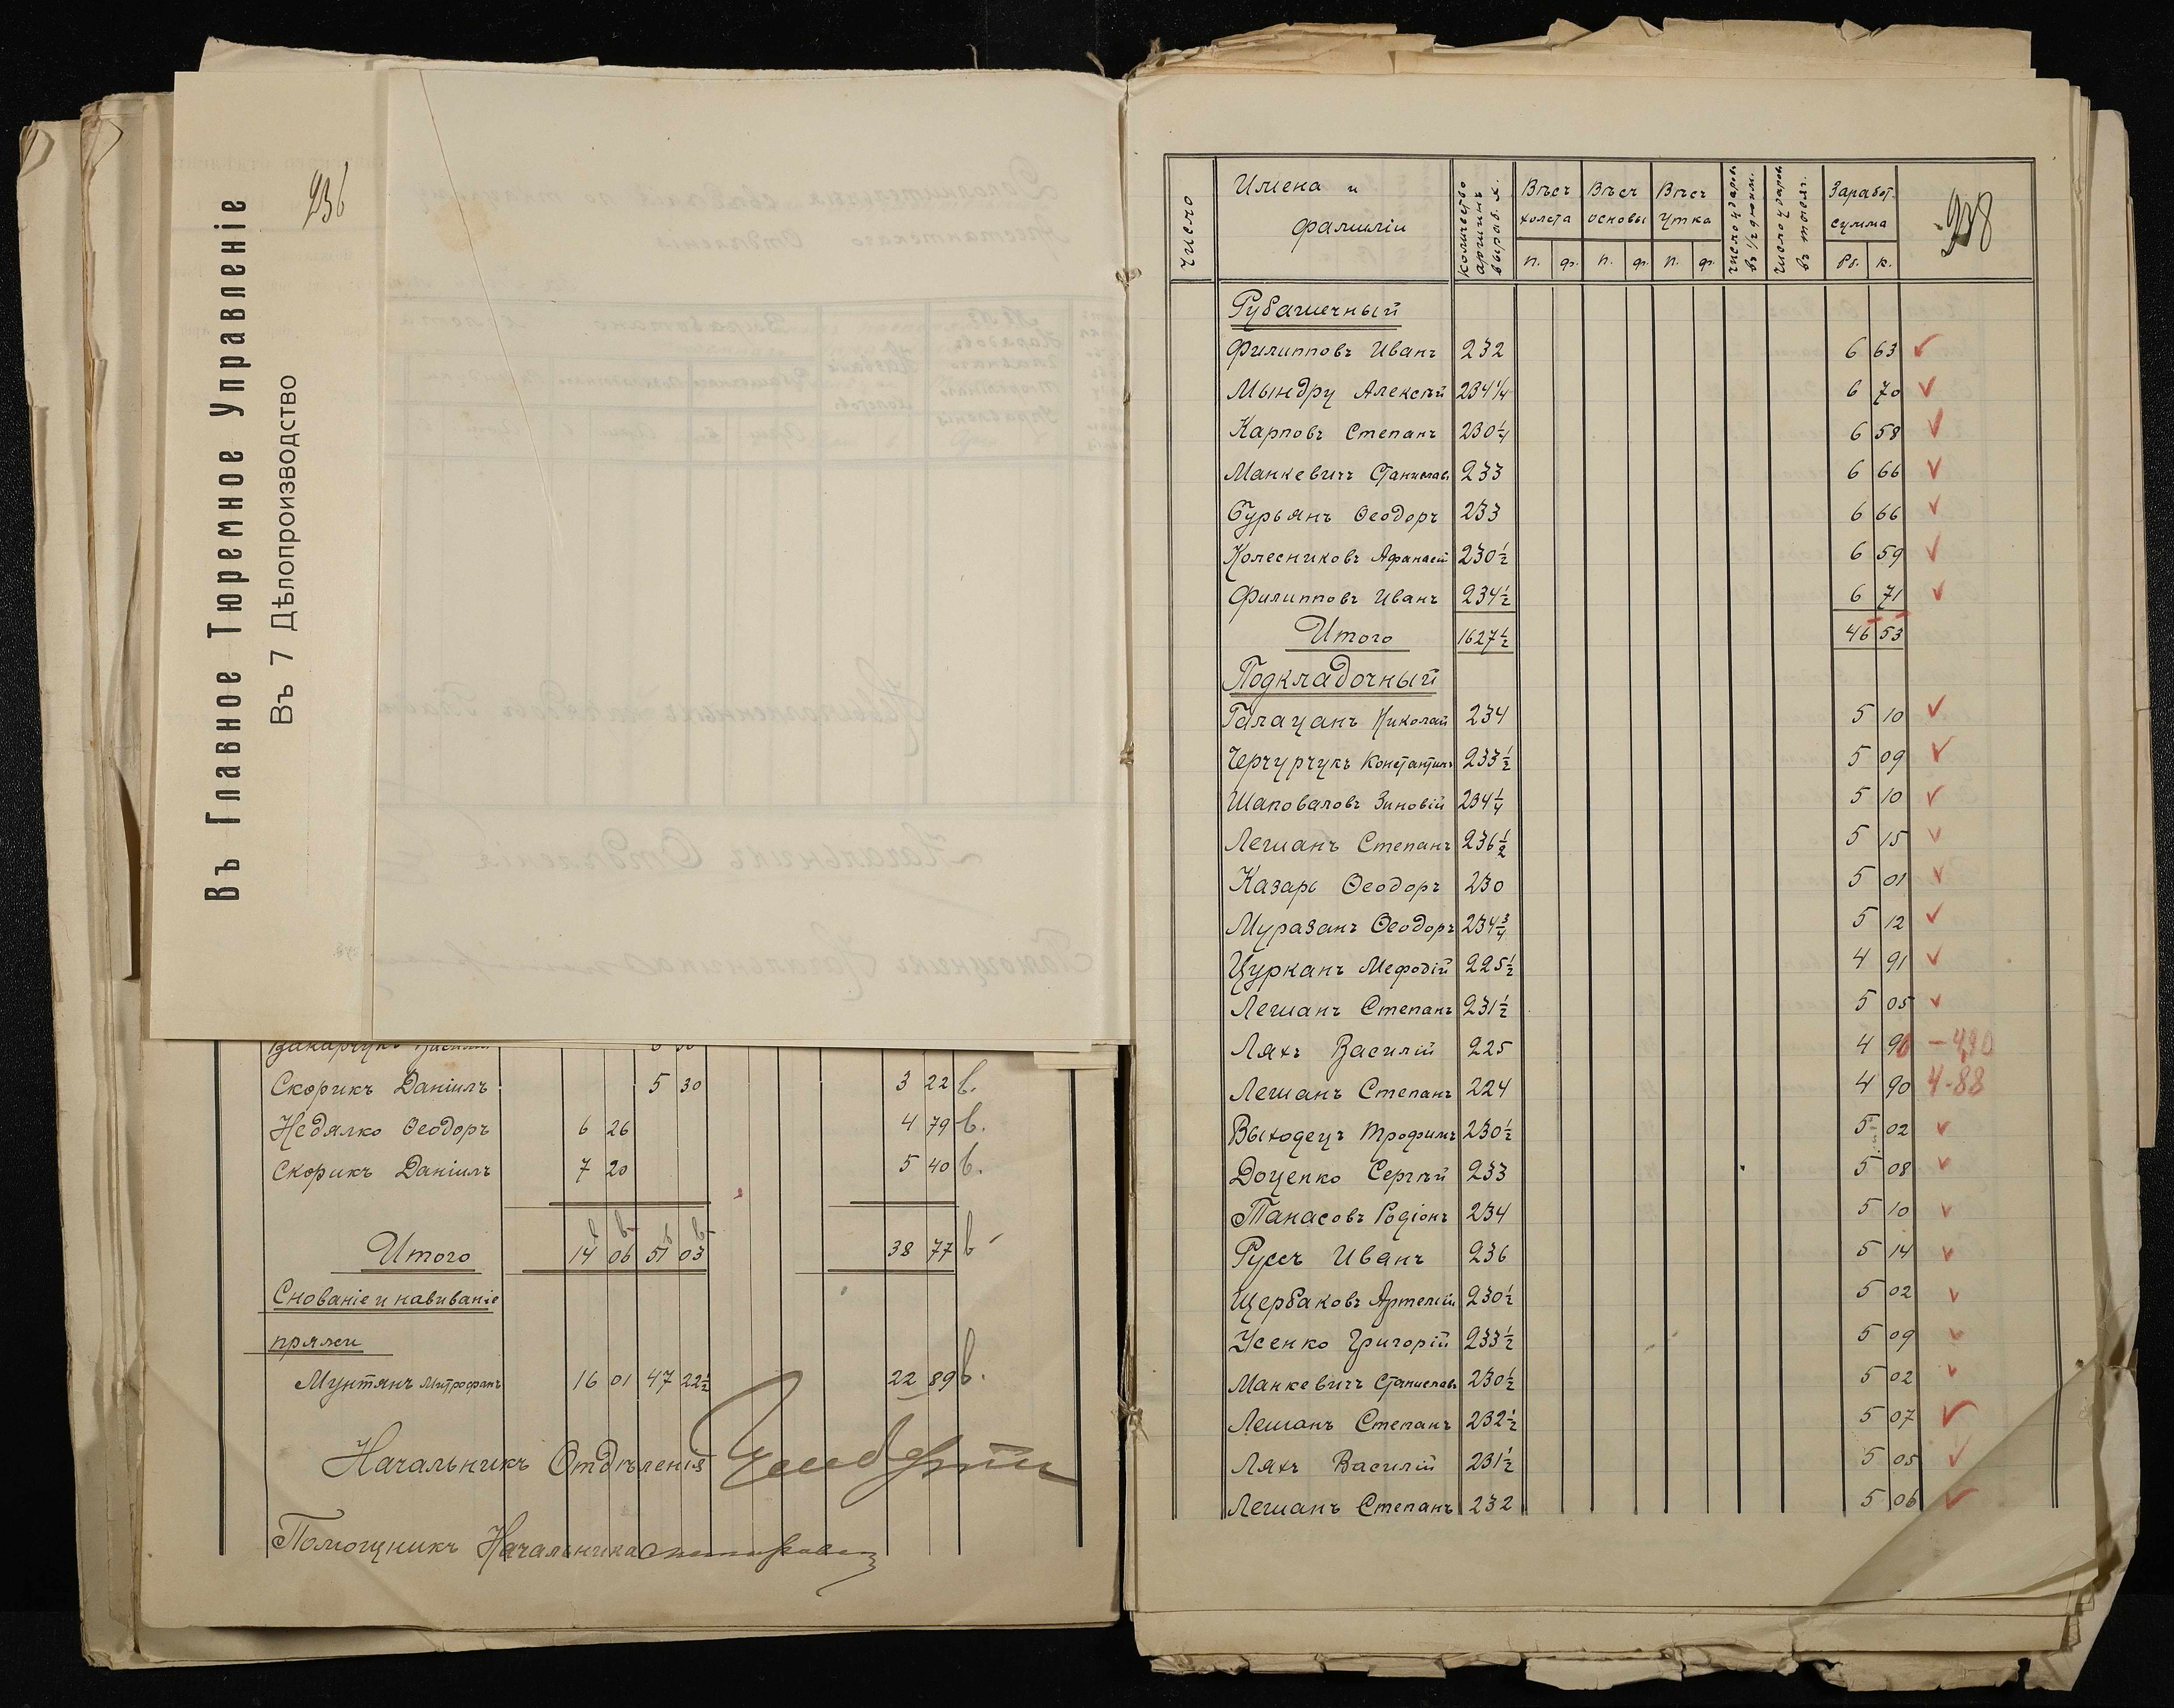 Въ Главное Тюремное Управленіе
Въ 7 Дѣлопроизводство
236
Скорикъ Даніилъ 5 30 3 22 в.
Недялко Ѳеодоръ 6 26 4 79 в.
Скорикъ Даніилъ 7 20 5 40 в.
Итого 14 06 51 03 38 77 в
Снованіе и навиваніе
пряжи
Мунтянъ Митрофанъ 16 01 47 22½ 22 89 в.
Начальникъ Отдѣленія
Помощникъ Начальника
238
Число
Имена и фамиліи
Количество аршинъ выраб. х.
Вѣсъ холста
Вѣсъ основы
Вѣсъ утка
число ударовъ въ ½ дюйм.
число ударовъ
Заработ. сумма
п. ф. п. ф. п. ф. Рб. к.
Рубашечный
Филипповъ Иванъ 232 6 63
Мындру Алексѣй 234¼ 6 70
Карповъ Степанъ 230¼ 6 58
Манкевичъ Станиславъ 233 6 66
Бурьянъ Ѳеодоръ 233 6 66
Колесниковъ Афанасій 230½ 6 59
Филипповъ Иванъ 234½ 6 71
Итого 1627½ 46 53
Подкладочный
Галацанъ Николай 234 5 10
Черчурчукъ Константинъ 233½ 5 09
Шаповаловъ Зиновій 234¼ 5 10
Лешанъ Степанъ 236½ 5 15
Казаръ Ѳеодоръ 230 5 01
Муразанъ Ѳеодоръ 234¾ 5 12
Цурканъ Мефодій 225½ 4 91
Лешанъ Степанъ 231½ 5 05
Ляхъ Василій 225 4 90 - 4,90
Лешанъ Степанъ 224 4 90 4-88
Выходецъ Трофимъ 230½ 5 02
Доценко Сергѣй 233 5 08
Танасовъ Родіонъ 234 5 10
Руссъ Иванъ 236 5 14
Щербаковъ Артемій 230½ 5 02
Усенко Григорій 233½ 5 09
Манкевичъ Станиславъ 230½ 5 02
Лешанъ Степанъ 232½ 5 07
Ляхъ Василій 231½ 5 05
Лешанъ Степанъ 232 5 06